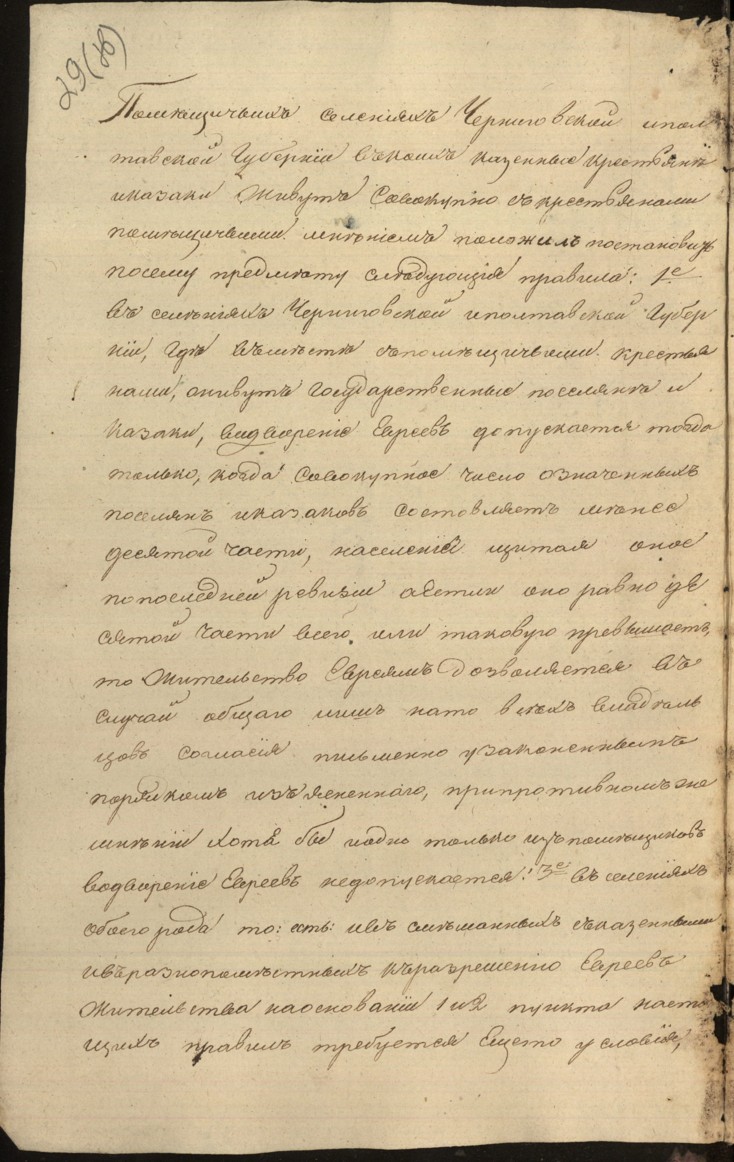 29(об)
Помѣщичьихъ селеніяхъ Черниговской ипол
тавской Губерніи въкоихъ казенные крестьянѣ
иказаки живутъ Совокупно съкрестьянами
помѣщичьими мнѣніемъ положилъ постановить
посему предмѣту слѣдующія правила: 1е
въ селѣніяхъ Черниговской иполтавской Губер
ніи, Гдѣ вмѣстѣ съпомѣщичьими крестья
нами, живутъ Государственные поселянѣ и
казаки, водвореніе Евреевъ допускается тогда
только, когда Совокупное число означенныхъ
поселянъ иказаковъ составляетъ мѣнее
десятой части, населенія щитая оное
попоследней ревизіи аестли оно равно де
сятой части всего, или таковую превышаетъ,
то жительство Евреямъ дозволяется въ
случай общаго нато всехъ владѣль
цовъ согласія письменно узаконеннымъ
порядкомъ изъясненнаго, припротивномъ же
мнѣніи хотя бы иодно только изъпомѣщиковъ
водвореніе Евреевъ недопускается: 3е въ селеніяхъ
обоего рода то: есть: ивъ смѣшанныхъ съказенными
ивъразнопомѣстныхъ къразрешенію Евреевъ
жительства наоснованіи 1 и2 пункта насто
щихъ правилъ требуется Ещето условія,